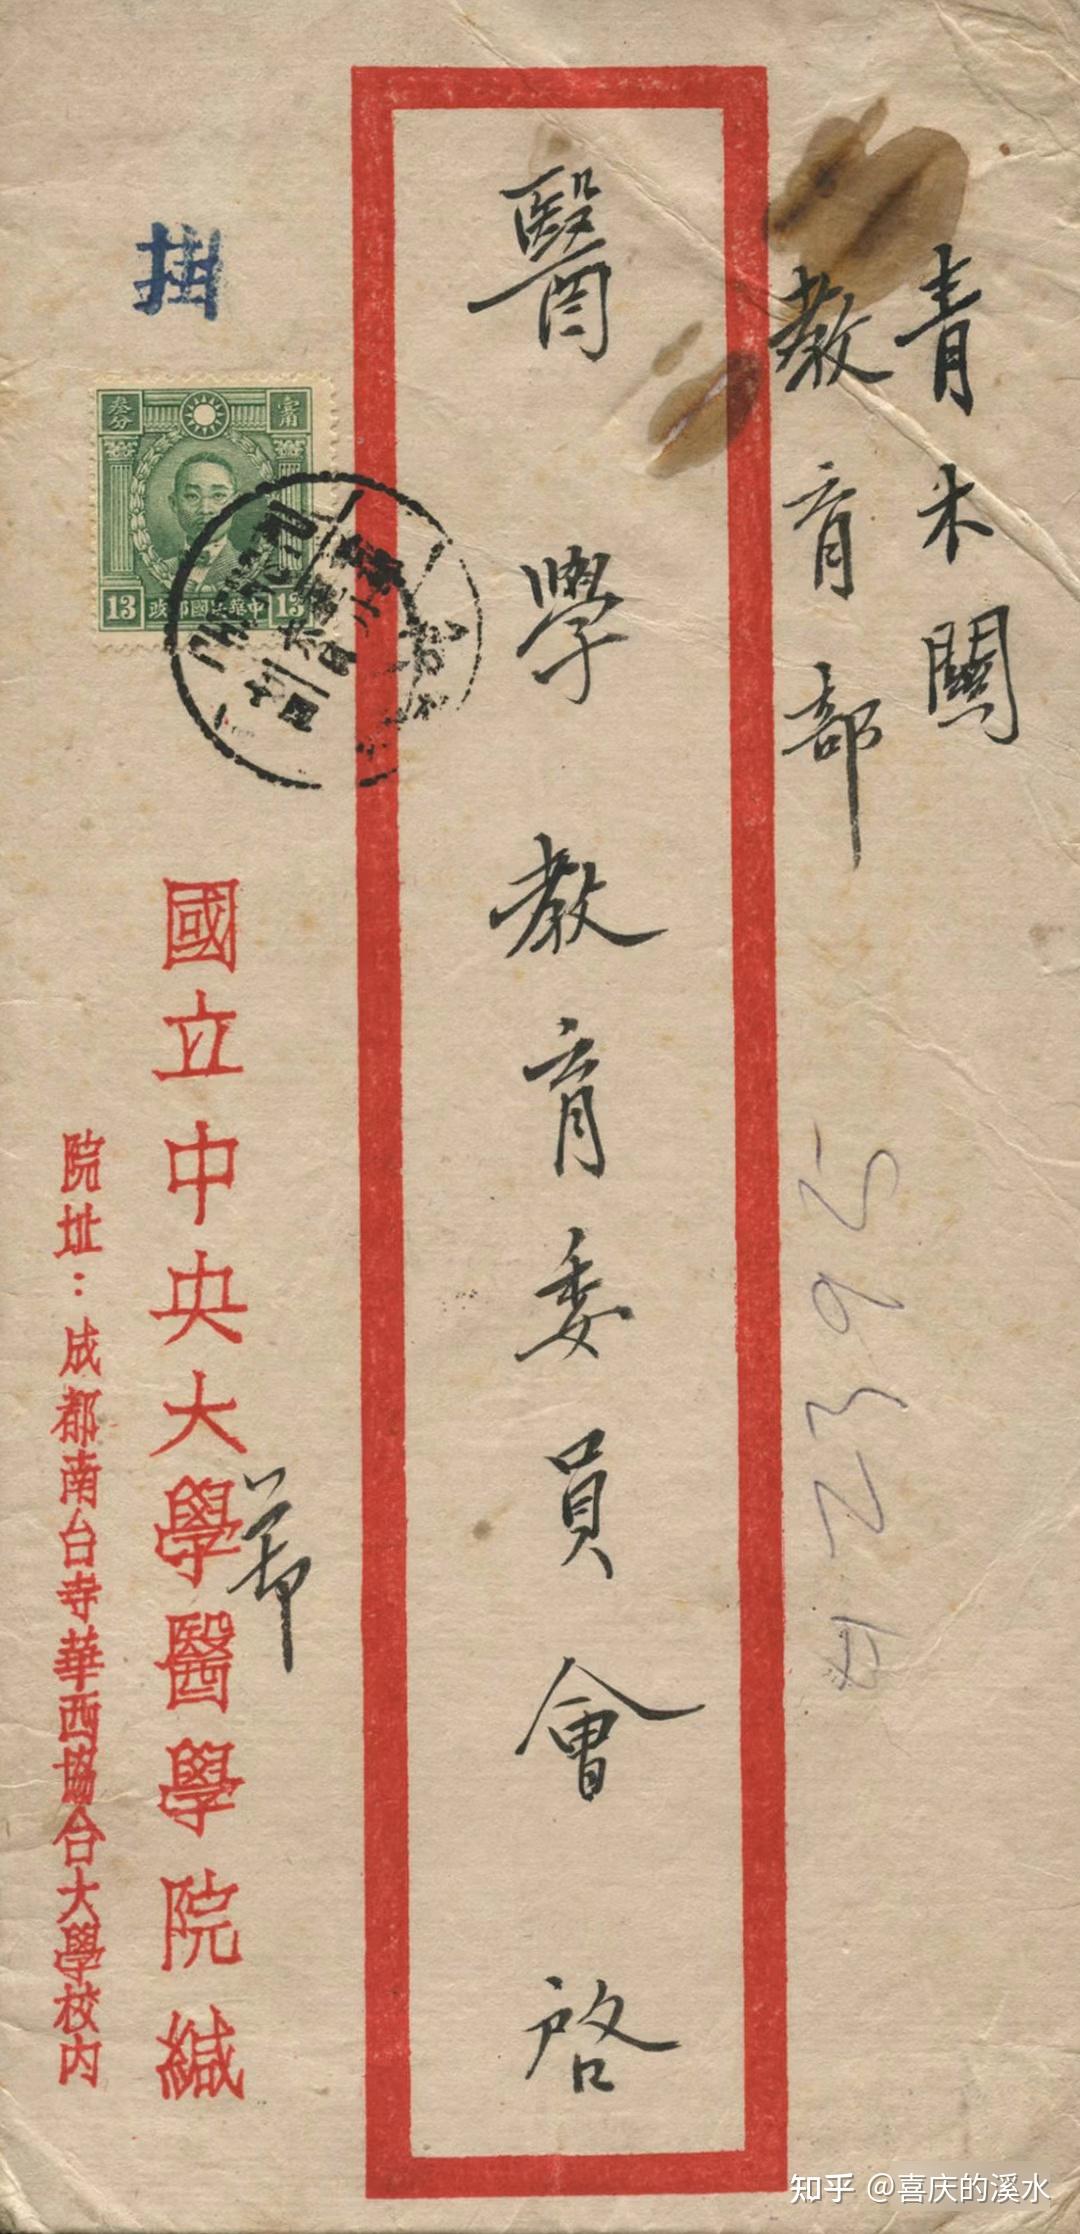 青木關
教育部
醫學教育委員會 啓
掛
叁分
壹角
13 中華民國郵政 13
國立中央大學醫學院緘
院址：成都南台寺華西協合大學校內
知乎 @喜庆的溪水